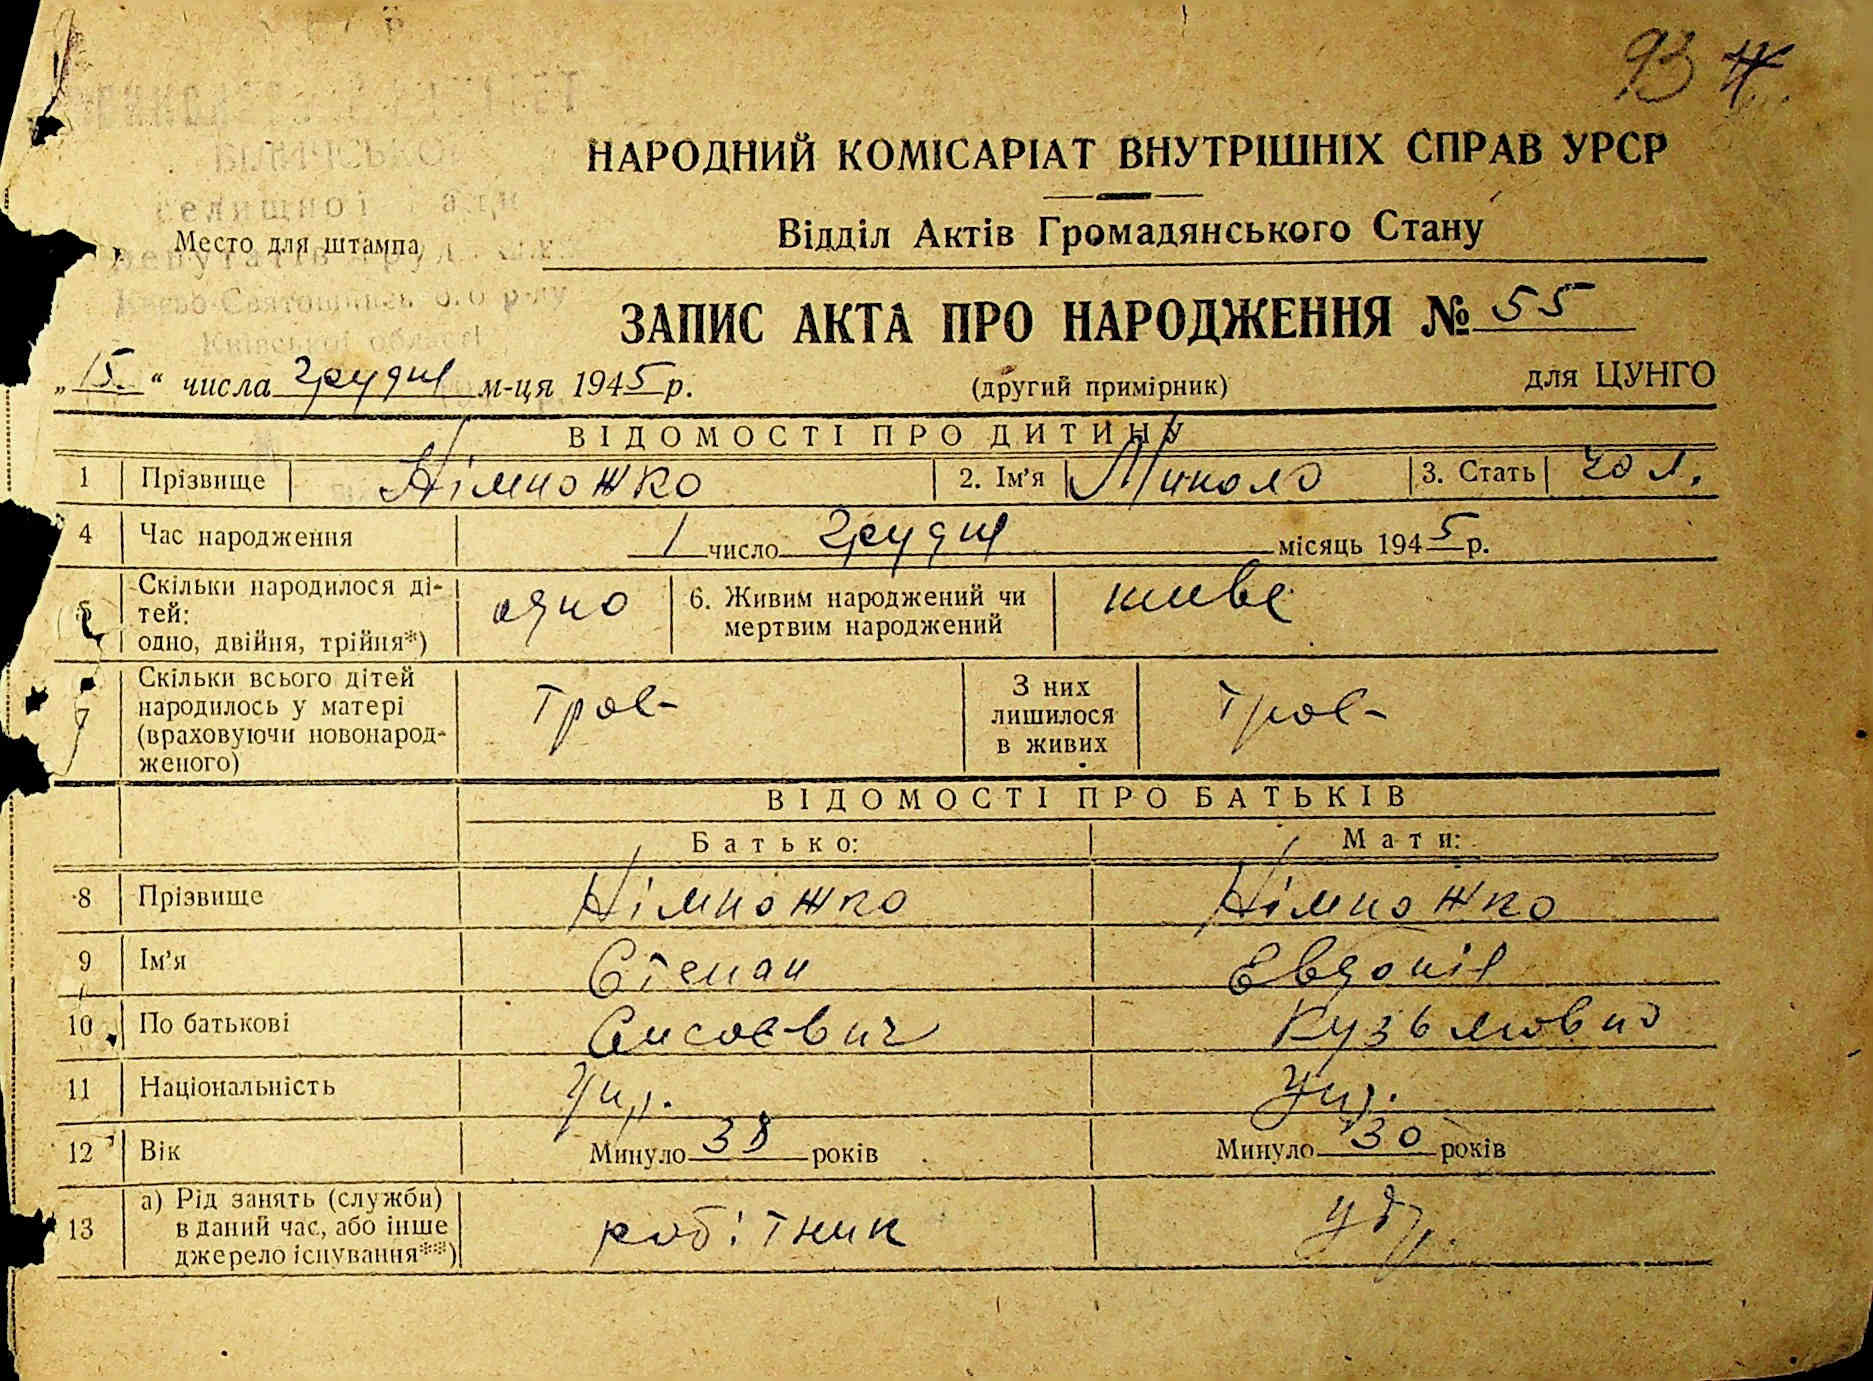 93
НАРОДНИЙ КОМІСАРІАТ ВНУТРІШНІХ СПРАВ УРСР
БІЛИЧСЬКОЇ
селищної Ради
Место для штампа
Відділ Актів Громадянського Стану
депутатів
Києво-Святошинського р-ну
Київської області
ЗАПИС АКТА ПРО НАРОДЖЕННЯ № 55
„15.“ числа грудня м-ця 1945 р. (другий примірник) для ЦУНГО
ВІДОМОСТІ ПРО ДИТИНУ
1 Прізвище Німножко 2. Ім'я Микола 3. Стать чол.
4 Час народження 1 число грудня місяць 1945 р.
5 Скільки народилося ді-
тей:
одно, двійня, трійня*) одно 6. Живим народжений чи
мертвим народжений живе
7 Скільки всього дітей
народилось у матері
(враховуючи новонарод-
женого) троє З них
лишилося
в живих троє
ВІДОМОСТІ ПРО БАТЬКІВ
Батько: Мати:
8 Прізвище Німножко Німножко
9 Ім'я Степан Евдокія
10 По батькові Сисоєвич Кузьмовна
11 Національність Укр. Укр.
12 Вік Минуло 38 років Минуло 30 років
13 а) Рід занять (служби)
в даний час, або інше
джерело існування**) робітник утр.